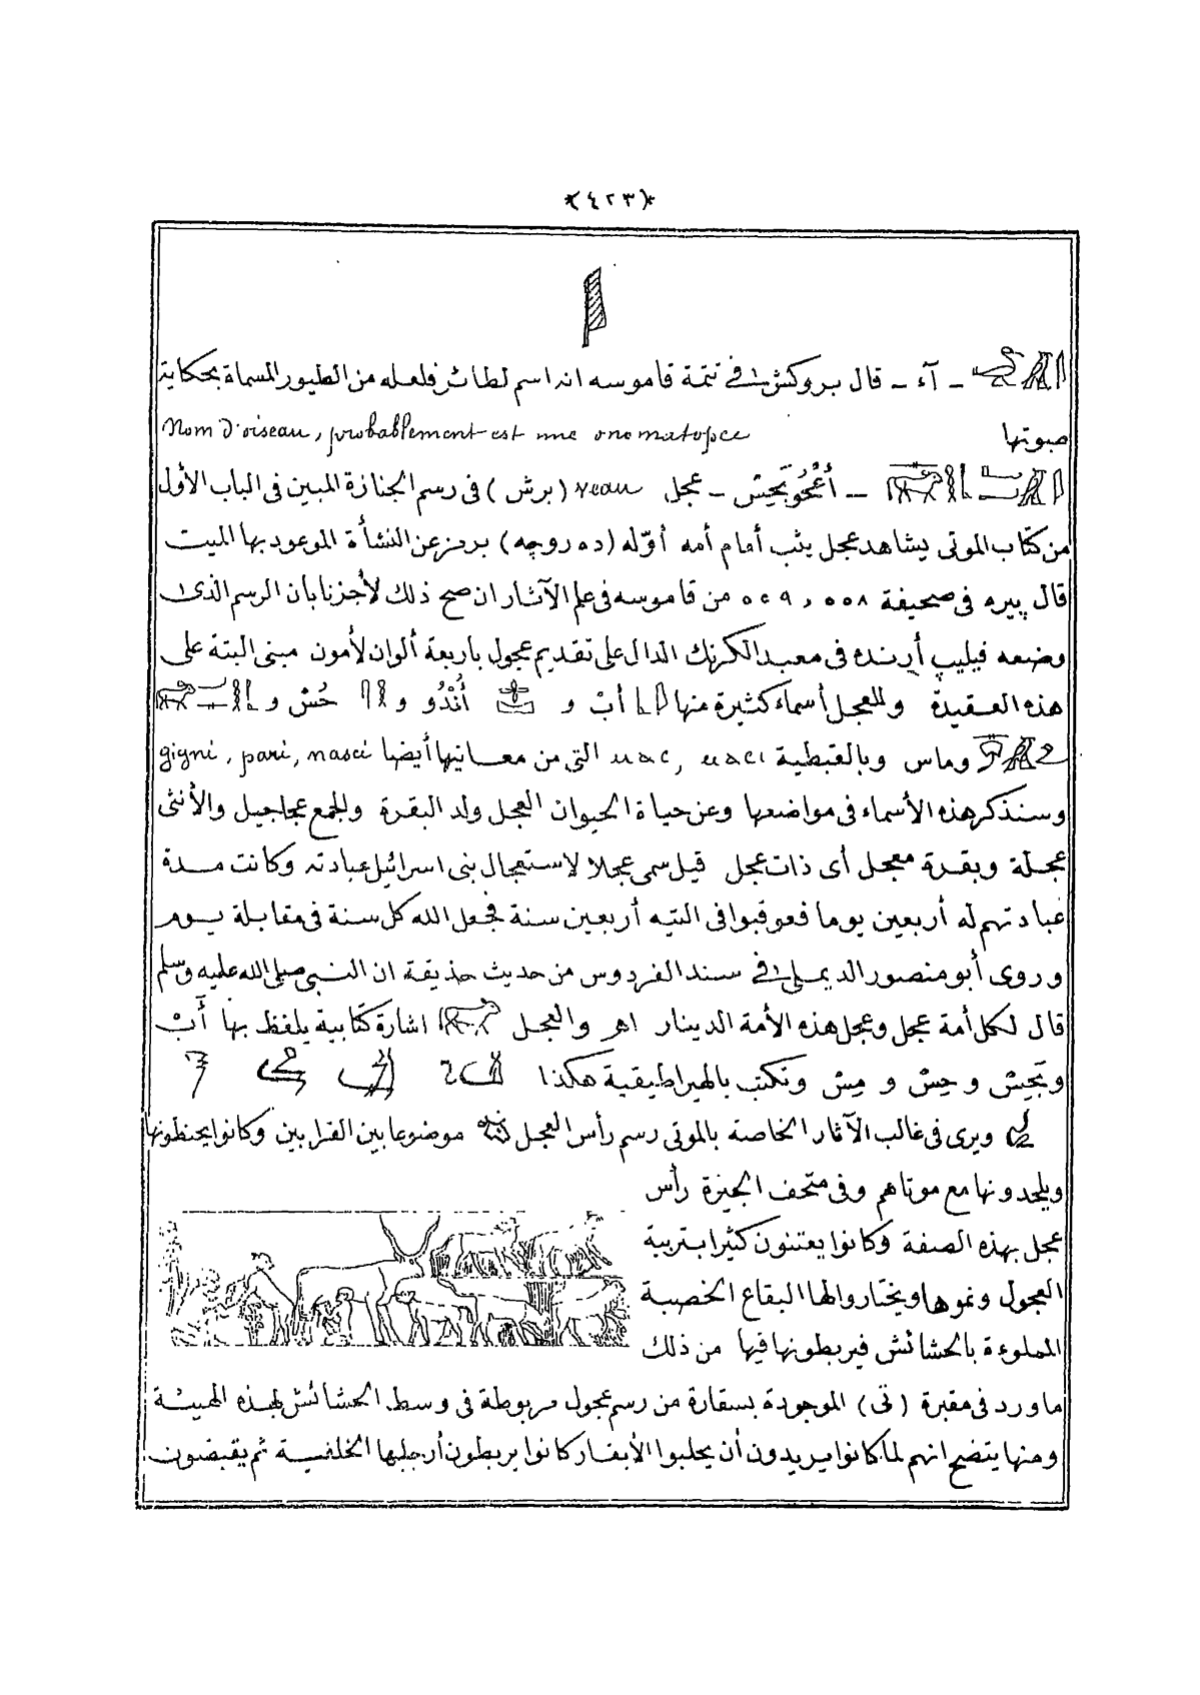 ﴿٤٢٣﴾
ـ آء ـ قال بروكش فى تتمة قاموسه انه اسم لطائر فلعله من الطيور المسماة بحكاية
صوتها Nom d'oiseau, probablement est une onomatopée
ـ ـ عجل veau (برش) فى رسم الجنازة المبين فى الباب الأول
من كتاب الموتى يشاهد عجل يثب أمام أمه أوّله (ده روچه) برمز عن النشأة الموعود بها الميت
قال پيره فى صحيفة ٥٥٨ و ٥٤٩ من قاموسه فى علم الآثار ان صح ذلك لأجزنا بان الرسم الذى
وضعه فيليپ أرنده فى معبد الكرنك الدال على تقديم عجول باربعة ألوان لأمون مبنى البتة على
هذه العقيدة وللعجل أسماء كثيرة منها أبْ و أُنْدُو و حُسْ و
وماس وبالقبطية ⲙⲁⲥ, ⲙⲁⲥⲓ التى من معانيها أيضا gigni, pari, nasci
وسنذكر هذه الأسماء فى مواضعها وعن حياة الحيوان العجل ولد البقرة والجمع عجاجيل والأنثى
عجلة وبقرة معجل أى ذات عجل قيل سمى عجلا لاستعجال بنى اسرائيل عبادته وكانت مدة
عبادتهم له أربعين يوما فعوقبوا فى التيه أربعين سنة فجعل الله كل سنة فى مقابلة يوم
وروى أبو منصور الديملى فى سند الفردوس من حديث حذيفة ان النبى صلى الله عليه وسلم
قال لكل أمة عجل وعجل هذه الأمة الدينار اهر والعجل اشارة كتابية يلفظ بها أَبْ
و بَحِسْ و حِسْ و مِسْ وتكتب بالهيراطيقية هكذا
ويرى فى غالب الآثار الخاصة بالموتى رسم رأس العجل موضوعا بين القرابين وكانوا يحنطونها
ويلحدونها مع موتاهم وفى متحف الجيزة رأس
عجل بهذه الصفة وكانوا يعتنون كثيرا بتربية
العجول ونموها ويختاروا لها البقاع الخصبة
المملوءة بالحشائش فيربطونها فيها من ذلك
ماورد فى مقبرة (تى) الموجودة بسقارة من رسم عجول مربوطة فى وسط الحشائش لهذه الهيئة
ومنها يتضح انهم لما كانوا يريدون أن يحلبوا الأبقار كانوا يربطون أرجلها الخلفية ثم يقبضون